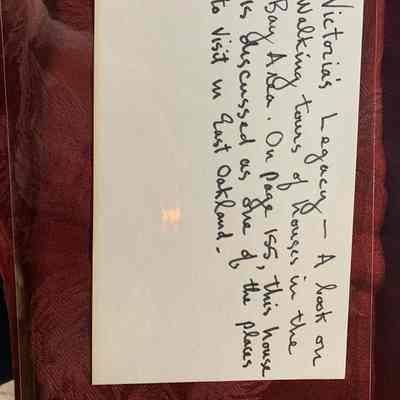 Victoria's Legacy - A book on
Walking tours of houses in the
Bay Area. On page 155, this house
is discussed as one of the places
to visit in East Oakland.